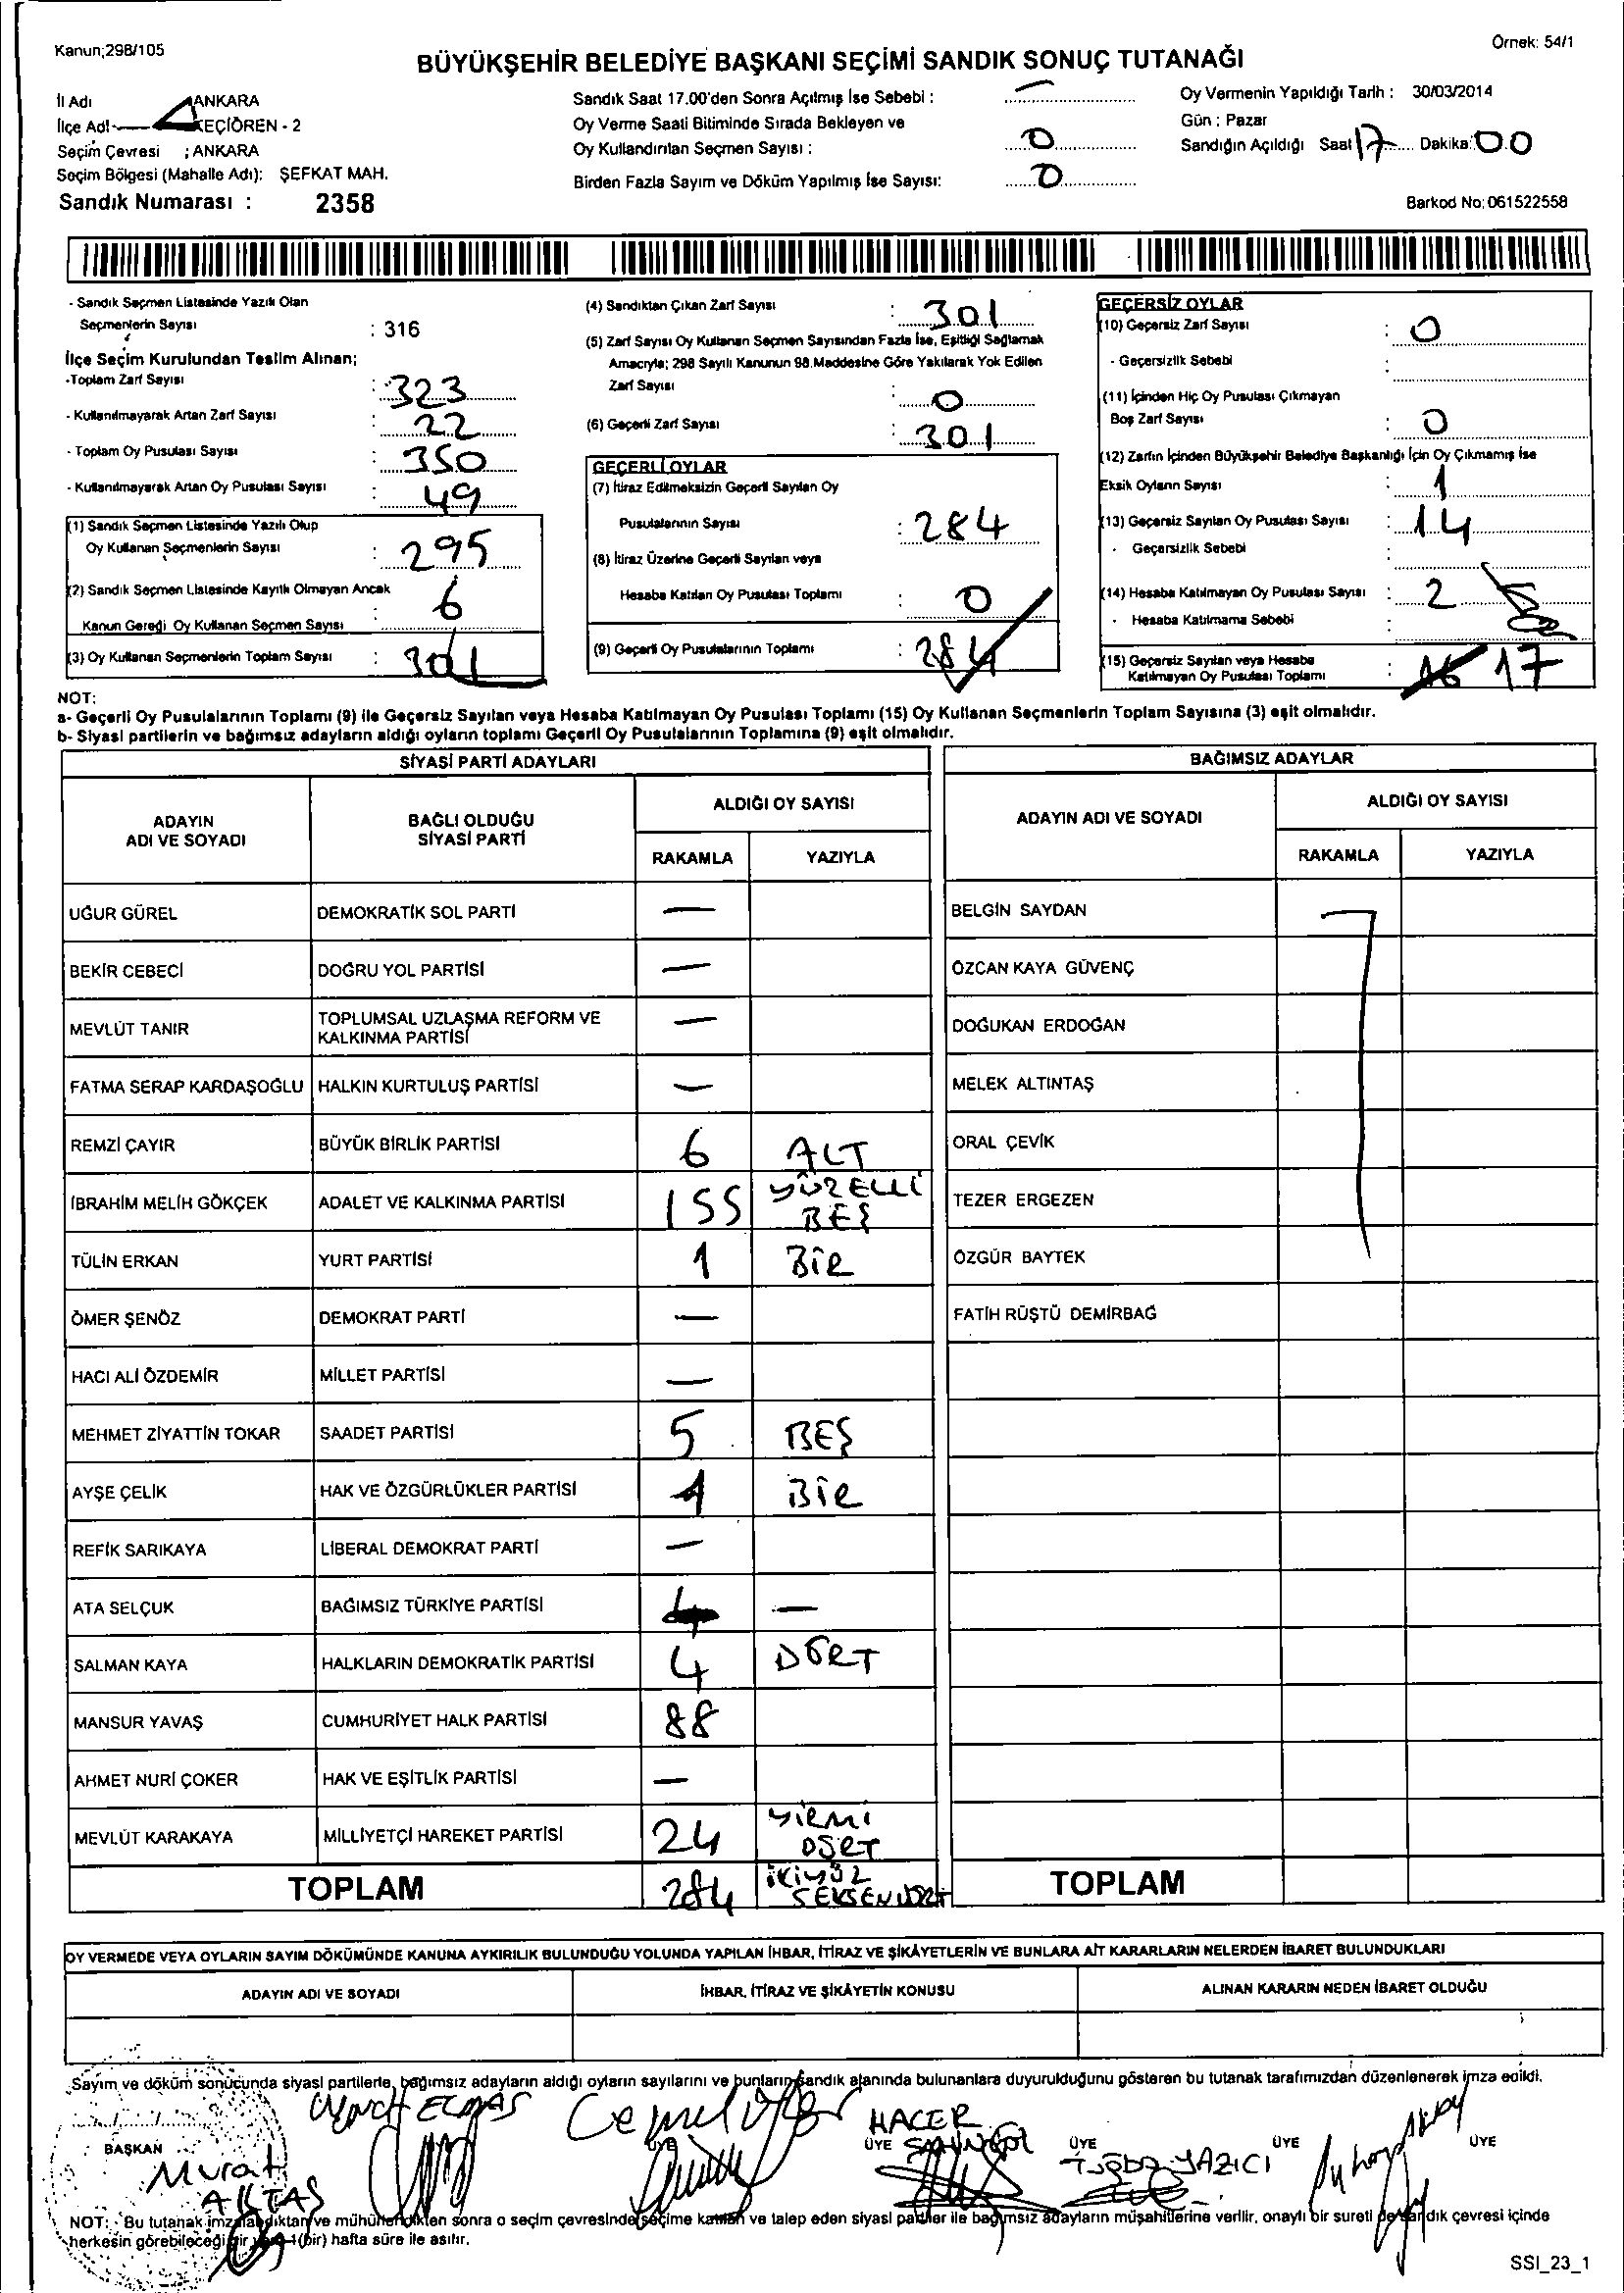 Kanun;298/105
Örnek: 54/1
BÜYÜKŞEHİR BELEDİYE BAŞKANI SEÇİMİ SANDIK SONUÇ TUTANAĞI
İl Adı ANKARA
İlçe Adı KEÇİÖREN - 2
Seçim Çevresi ; ANKARA
Seçim Bölgesi (Mahalle Adı): ŞEFKAT MAH.
Sandık Numarası : 2358
Sandık Saat 17.00'den Sonra Açılmış İse Sebebi : —
Oy Verme Saati Bitiminde Sırada Bekleyen ve
Oy Kullandırılan Seçmen Sayısı : 0
Birden Fazla Sayım ve Döküm Yapılmış İse Sayısı: 0
Oy Vermenin Yapıldığı Tarih : 30/03/2014
Gün : Pazar
Sandığın Açıldığı Saat 17 Dakika: 00
Barkod No: 061522558
- Sandık Seçmen Listesinde Yazılı Olan
Seçmenlerin Sayısı : 316
İlçe Seçim Kurulundan Teslim Alınan;
-Toplam Zarf Sayısı : 323
- Kullanılmayarak Artan Zarf Sayısı : 22
- Toplam Oy Pusulası Sayısı : 350
- Kullanılmayarak Artan Oy Pusulası Sayısı : 49
(1) Sandık Seçmen Listesinde Yazılı Olup
Oy Kullanan Seçmenlerin Sayısı : 295
(2) Sandık Seçmen Listesinde Kayıtlı Olmayan Ancak
Kanun Gereği Oy Kullanan Seçmen Sayısı 6
(3) Oy Kullanan Seçmenlerin Toplam Sayısı : 301
(4) Sandıktan Çıkan Zarf Sayısı : 301
(5) Zarf Sayısı Oy Kullanan Seçmen Sayısından Fazla İse, Eşitliği Sağlamak
Amacıyla; 298 Sayılı Kanunun 98.Maddesine Göre Yakılarak Yok Edilen
Zarf Sayısı : 0
(6) Geçerli Zarf Sayısı : 301
GEÇERLİ OYLAR
(7) İtiraz Edilmeksizin Geçerli Sayılan Oy
Pusulalarının Sayısı : 284
(8) İtiraz Üzerine Geçerli Sayılan veya
Hesaba Katılan Oy Pusulası Toplamı : 0
(9) Geçerli Oy Pusulalarının Toplamı : 284
GEÇERSİZ OYLAR
(10) Geçersiz Zarf Sayısı : 0
- Geçersizlik Sebebi :
(11) İçinden Hiç Oy Pusulası Çıkmayan
Boş Zarf Sayısı : 0
(12) Zarfın İçinden Büyükşehir Belediye Başkanlığı İçin Oy Çıkmamış İse
Eksik Oyların Sayısı : 1
(13) Geçersiz Sayılan Oy Pusulası Sayısı : 14
- Geçersizlik Sebebi :
(14) Hesaba Katılmayan Oy Pusulası Sayısı : 2
- Hesaba Katılmama Sebebi :
(15) Geçersiz Sayılan veya Hesaba
Katılmayan Oy Pusulası Toplamı : 16 17
NOT:
a- Geçerli Oy Pusulalarının Toplamı (9) ile Geçersiz Sayılan veya Hesaba Katılmayan Oy Pusulası Toplamı (15) Oy Kullanan Seçmenlerin Toplam Sayısına (3) eşit olmalıdır.
b- Siyasi partilerin ve bağımsız adayların aldığı oyların toplamı Geçerli Oy Pusulalarının Toplamına (9) eşit olmalıdır.
SİYASİ PARTİ ADAYLARI
ADAYIN
ADI VE SOYADI
BAĞLI OLDUĞU
SİYASİ PARTİ
ALDIĞI OY SAYISI
RAKAMLA YAZIYLA
UĞUR GÜREL DEMOKRATİK SOL PARTİ —
BEKİR CEBECİ DOĞRU YOL PARTİSİ —
MEVLÜT TANIR TOPLUMSAL UZLAŞMA REFORM VE
KALKINMA PARTİSİ —
FATMA SERAP KARDAŞOĞLU HALKIN KURTULUŞ PARTİSİ —
REMZİ ÇAYIR BÜYÜK BİRLİK PARTİSİ 6 ALT
İBRAHİM MELİH GÖKÇEK ADALET VE KALKINMA PARTİSİ 155 YÜZELLİ
BEŞ
TÜLİN ERKAN YURT PARTİSİ 1 BİR
ÖMER ŞENÖZ DEMOKRAT PARTİ —
HACI ALİ ÖZDEMİR MİLLET PARTİSİ —
MEHMET ZİYATTİN TOKAR SAADET PARTİSİ 5 BEŞ
AYŞE ÇELİK HAK VE ÖZGÜRLÜKLER PARTİSİ 1 BİR
REFİK SARIKAYA LİBERAL DEMOKRAT PARTİ —
ATA SELÇUK BAĞIMSIZ TÜRKİYE PARTİSİ 4 —
SALMAN KAYA HALKLARIN DEMOKRATİK PARTİSİ 4 DÖRT
MANSUR YAVAŞ CUMHURİYET HALK PARTİSİ 88
AHMET NURİ ÇOKER HAK VE EŞİTLİK PARTİSİ —
MEVLÜT KARAKAYA MİLLİYETÇİ HAREKET PARTİSİ 24 YİRMİ
DÖRT
TOPLAM 284 İKİYÜZ
SEKSENDÖRT
BAĞIMSIZ ADAYLAR
ADAYIN ADI VE SOYADI
ALDIĞI OY SAYISI
RAKAMLA YAZIYLA
BELGİN SAYDAN
ÖZCAN KAYA GÜVENÇ
DOĞUKAN ERDOĞAN
MELEK ALTINTAŞ
ORAL ÇEVİK
TEZER ERGEZEN
ÖZGÜR BAYTEK
FATİH RÜŞTÜ DEMİRBAĞ
TOPLAM
OY VERMEDE VEYA OYLARIN SAYIM DÖKÜMÜNDE KANUNA AYKIRILIK BULUNDUĞU YOLUNDA YAPILAN İHBAR, İTİRAZ VE ŞİKÂYETLERİN VE BUNLARA AİT KARARLARIN NELERDEN İBARET BULUNDUKLARI
ADAYIN ADI VE SOYADI İHBAR, İTİRAZ VE ŞİKÂYETİN KONUSU ALINAN KARARIN NEDEN İBARET OLDUĞU
Sayım ve döküm sonucunda siyasi partilerle, bağımsız adayların aldığı oyların sayılarını ve bunların sandık alanında bulunanlara duyurulduğunu gösteren bu tutanak tarafımızdan düzenlenerek imza edildi.
ELMAS HACER
BAŞKAN ÜYE ÜYE ÜYE ÜYE ÜYE
Murat
AKTAŞ
TUĞBA YAZICI
NOT: Bu tutanak imzalandıktan ve mühürlendikten sonra o seçim çevresinde seçime katılan ve talep eden siyasi partiler ile bağımsız adayların müşahitlerine verilir, onaylı bir sureti de sandık çevresi içinde
herkesin görebileceği bir yere 1(bir) hafta süre ile asılır.
SSI_23_1